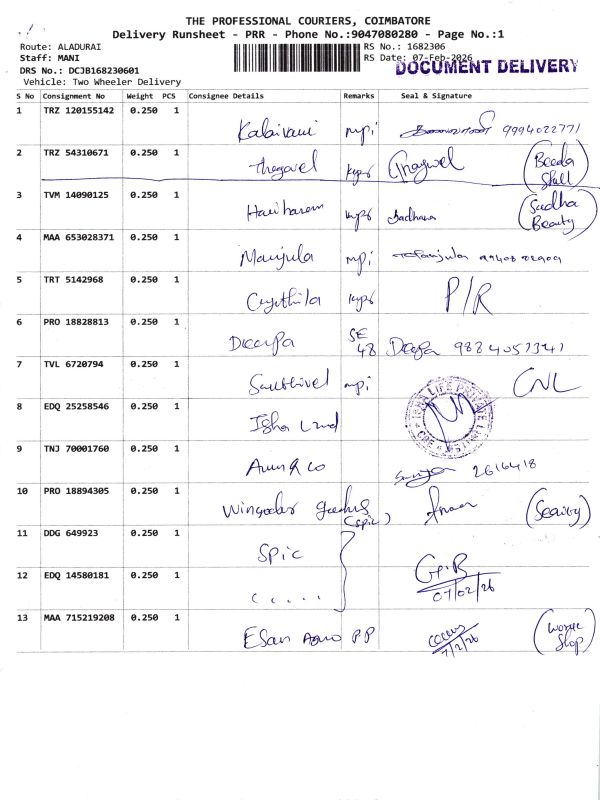 THE PROFESSIONAL COURIERS, COIMBATORE
Delivery Runsheet - PRR - Phone No.:9047080280 - Page No.:1
Route: ALADURAI
RS No.: 1682306
Staff: MANI
RS Date: 07-Feb-2026
DRS No.: DCJB168230601
DOCUMENT DELIVERY
Vehicle: Two Wheeler Delivery
S No Consignment No Weight PCS Consignee Details Remarks Seal & Signature
1 TRZ 120155142 0.250 1 Kalaivani mpi 9994022771
2 TRZ 54310671 0.250 1 Thangavel (Beeda Stall)
3 TVM 14090125 0.250 1 Hariharan Sadhana (Sudha Beauty)
4 MAA 653028371 0.250 1 Manjula mpi Manjula
5 TRT 5142968 0.250 1 P/R
6 PRO 18828813 0.250 1 Deepa SE 48 Deepa 9884057341
7 TVL 6720794 0.250 1 Sakthivel mpi CNL
8 EDQ 25258546 0.250 1 Isha
9 TNJ 70001760 0.250 1 Arun & co 2616418
10 PRO 18894305 0.250 1 (Spic)
11 DDG 649923 0.250 1 Spic
12 EDQ 14580181 0.250 1 07/02/26
13 MAA 715219208 0.250 1 Esan P P 7/2/26